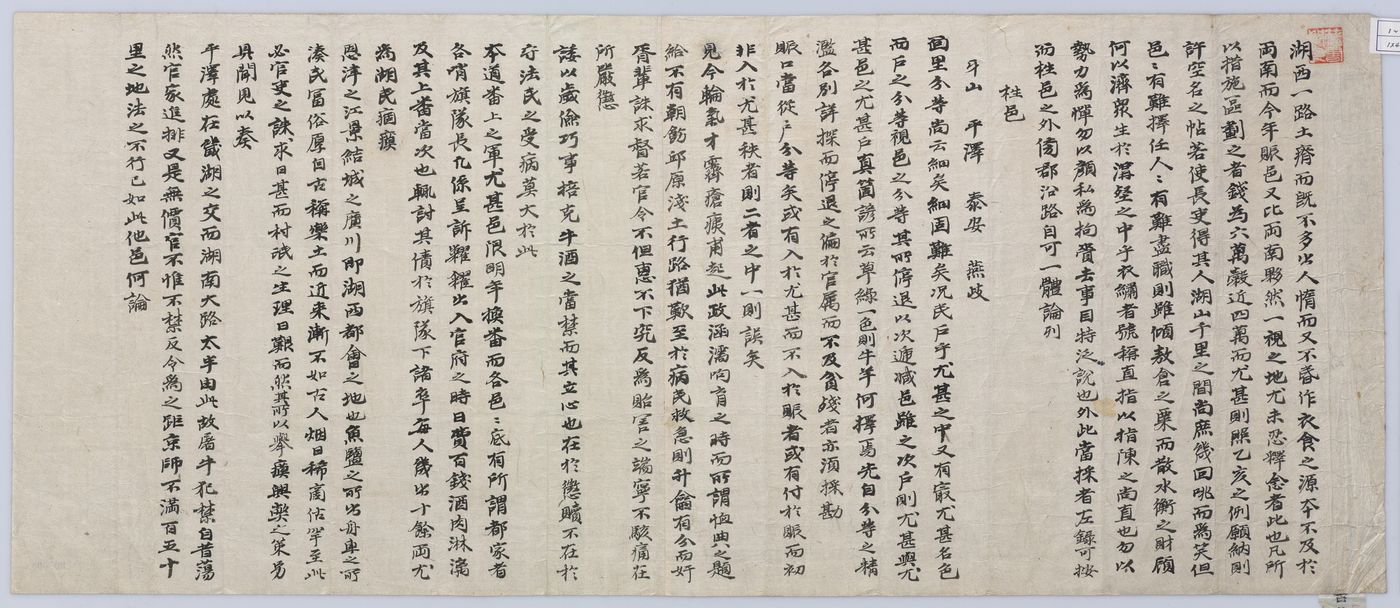 湖西一路土瘠而旣不多出人惰而又不昏作衣食之源本不及於
兩南而今年賑邑又比兩南夥然一視之地尤未忍釋念者此也凡所
以措施區劃之者錢爲六萬穀近四萬而尤甚則照乙亥之例願納則
許空名之帖若使長吏得其人湖山千里之間尚庶幾回咷而爲笑但
邑邑有難擇任人人有難盡職則雖傾敖倉之粟而散水衡之財顧
何以濟衆生於溝壑之中乎衣繡者號稱直指以指陳之尚直也勿以
勢力爲憚勿以顔私爲拘賫去事目特泛說也外此當採者左錄可按
而栍邑之外傍郡沿路自可一體論列
栍邑
牙山 平澤 泰安 燕歧
面里分等尚云細矣細固難矣况民戶乎尤甚之中又有㝡尤甚名色
而戶之分等視邑之分等其所停退以次遞减邑雖之次戶則尤甚與尤
甚邑之尤甚戶眞箇諺所云草綠一色則牛羊何擇焉先自分等之精
濫各別詳探而停退之偏於官屬而不及貧殘者亦須採勘
賑口當從戶分等矣或有入於尤甚而不入於賑者或有付於賑而初
非入於尤甚秩者則二者之中一則誤矣
見今輪氣才霽瘡痍甫起此政涵濡响育之時而所謂恤典之題
給不有朝飭邱原淺土行路猶歎至於病民救急則升龠有分而奸
胥輩誅求督若官令不但惠不下究反爲貽害之端寧不駭痛在
所嚴懲
諉以歲儉巧事掊克牛酒之當禁而其立心也在於懲贖不在於
守法民之受病莫大於此
本道番上之軍尤甚邑限明年換番而各邑邑底有所謂都家者
各哨旗隊長凡係呈訴糶糴出入官府之時日費百錢酒肉淋漓
及其上番當次也輒討其債於旗隊下諸卒每人幾出十餘兩尤
爲湖民痼瘼
恩津之江景結城之廣川即湖西都會之地也魚鹽之所出舟車之所
湊民富俗厚自古稱樂土而近來漸不如古人烟日稀商估罕至此
必官吏之誅求日甚而村氓之生理日艱而然其所以擧瘼與獘之策另
具聞見以奏
平澤處在畿湖之交而湖南大路太半由此故屠牛犯禁自昔蕩
然官家進排又是無價官不惟不禁反令爲之距京師不滿百五十
里之地法之不行已如此他邑何論